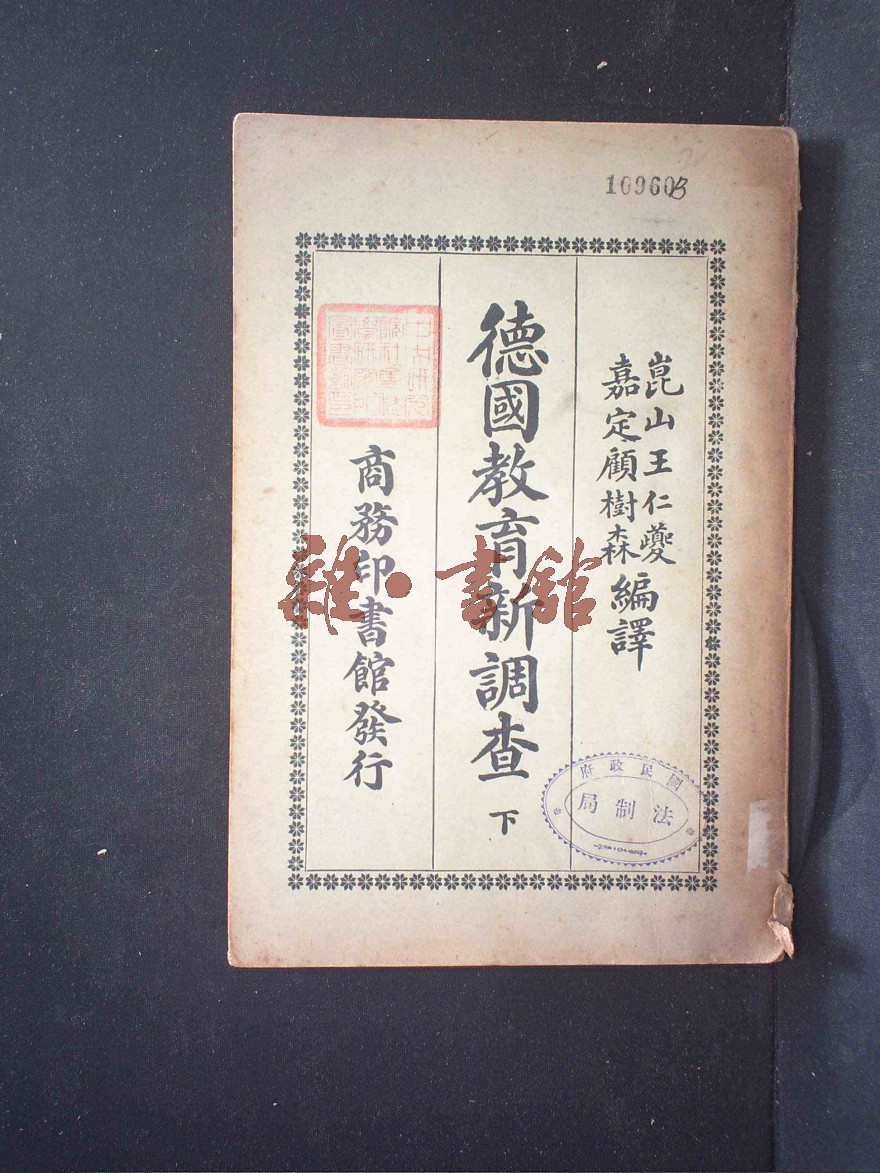 109603
崑山王仁夔
嘉定顧樹森
編譯
德國教育新調查 下
商務印書館發行
國民政府
法制局
雜·書館